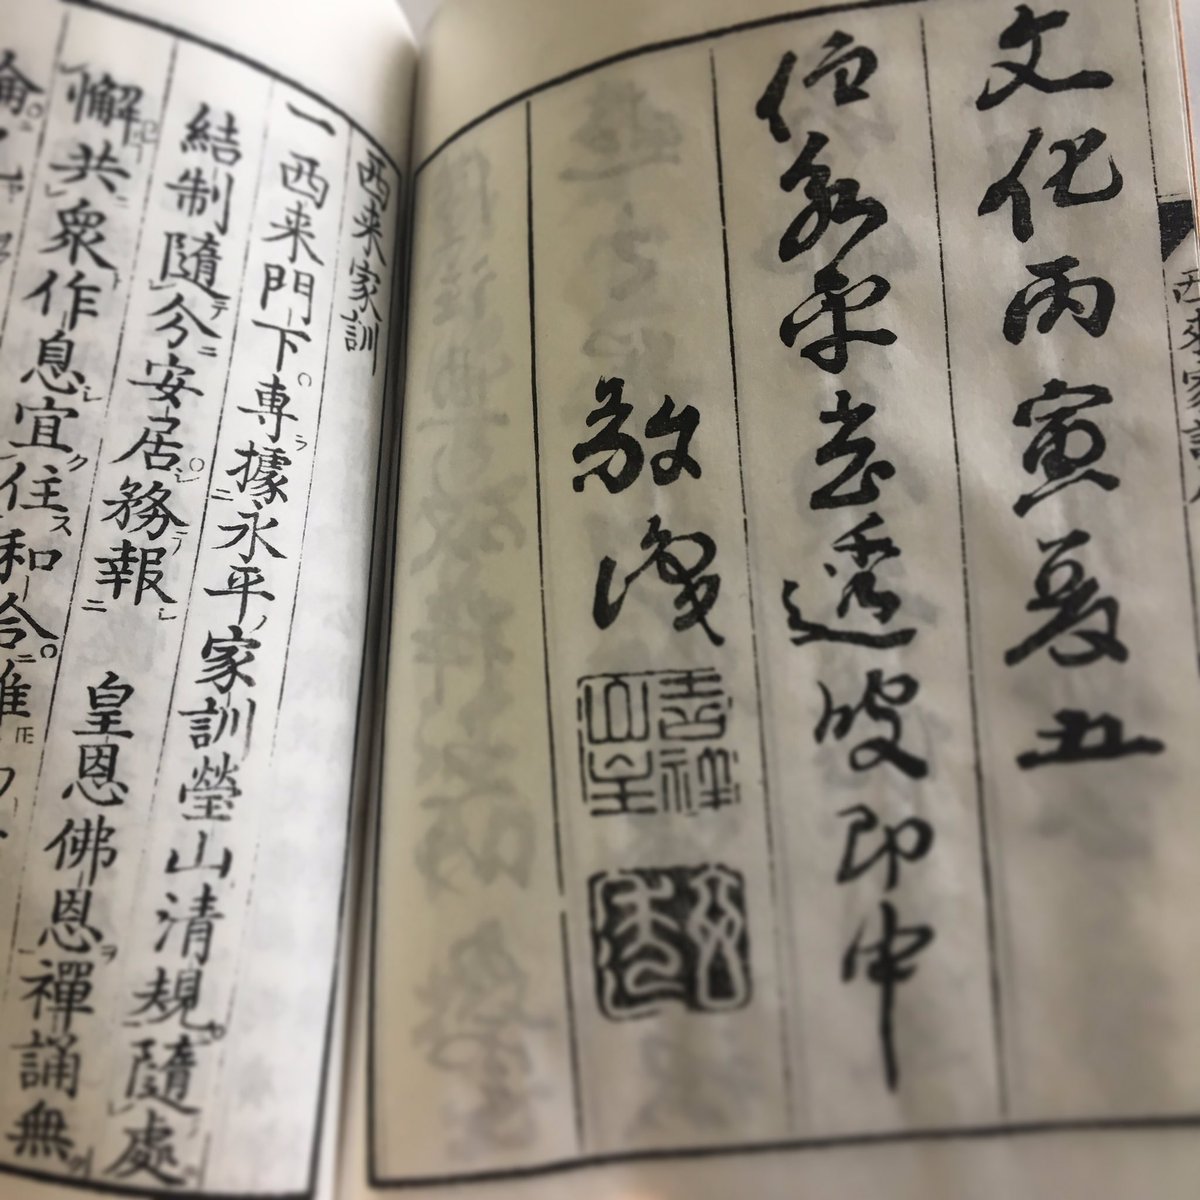 文化丙寅夏五
住永平玄透叟即中
敬識
西来家訓
一西来門下専據永平家訓瑩山清規隨處
結制隨分安居務報　皇恩佛恩禪誦無
懈共衆作息宜住和合